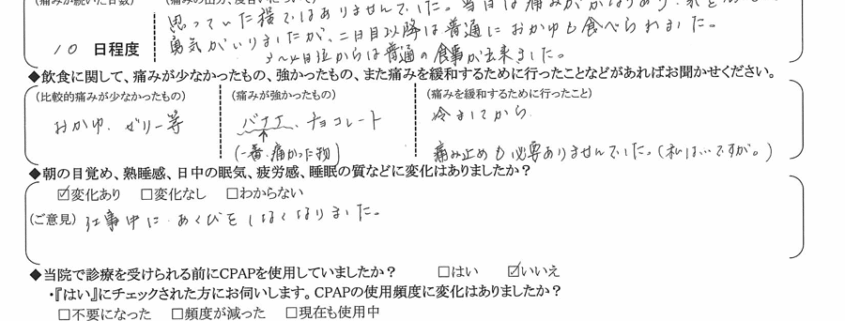 (痛みが続いた日数)
思っていた程ではありませんでした。当日は痛みが
10 日程度
勇気がいりましたが、二日目以降は普通におかゆも食べられました。
3〜4日位からは普通の食事が出来ました。
◆飲食に関して、痛みが少なかったもの、強かったもの、また痛みを緩和するために行ったことなどがあればお聞かせください。
(比較的痛みが少なかったもの) (痛みが強かったもの) (痛みを緩和するために行ったこと)
おかゆ、ゼリー等 バナナ、チョコレート 冷ましてから
↑
(一番痛かった物) 痛み止めも必要ありませんでした。(私は…ですが。)
◆朝の目覚め、熟睡感、日中の眠気、疲労感、睡眠の質などに変化はありましたか?
☑変化あり □変化なし □わからない
(ご意見) 仕事中に、あくびをしなくなりました。
◆当院で診療を受けられる前にCPAPを使用していましたか? □はい ☑いいえ
・『はい』にチェックされた方にお伺いします。CPAPの使用頻度に変化はありましたか?
□不要になった □頻度が減った □現在も使用中